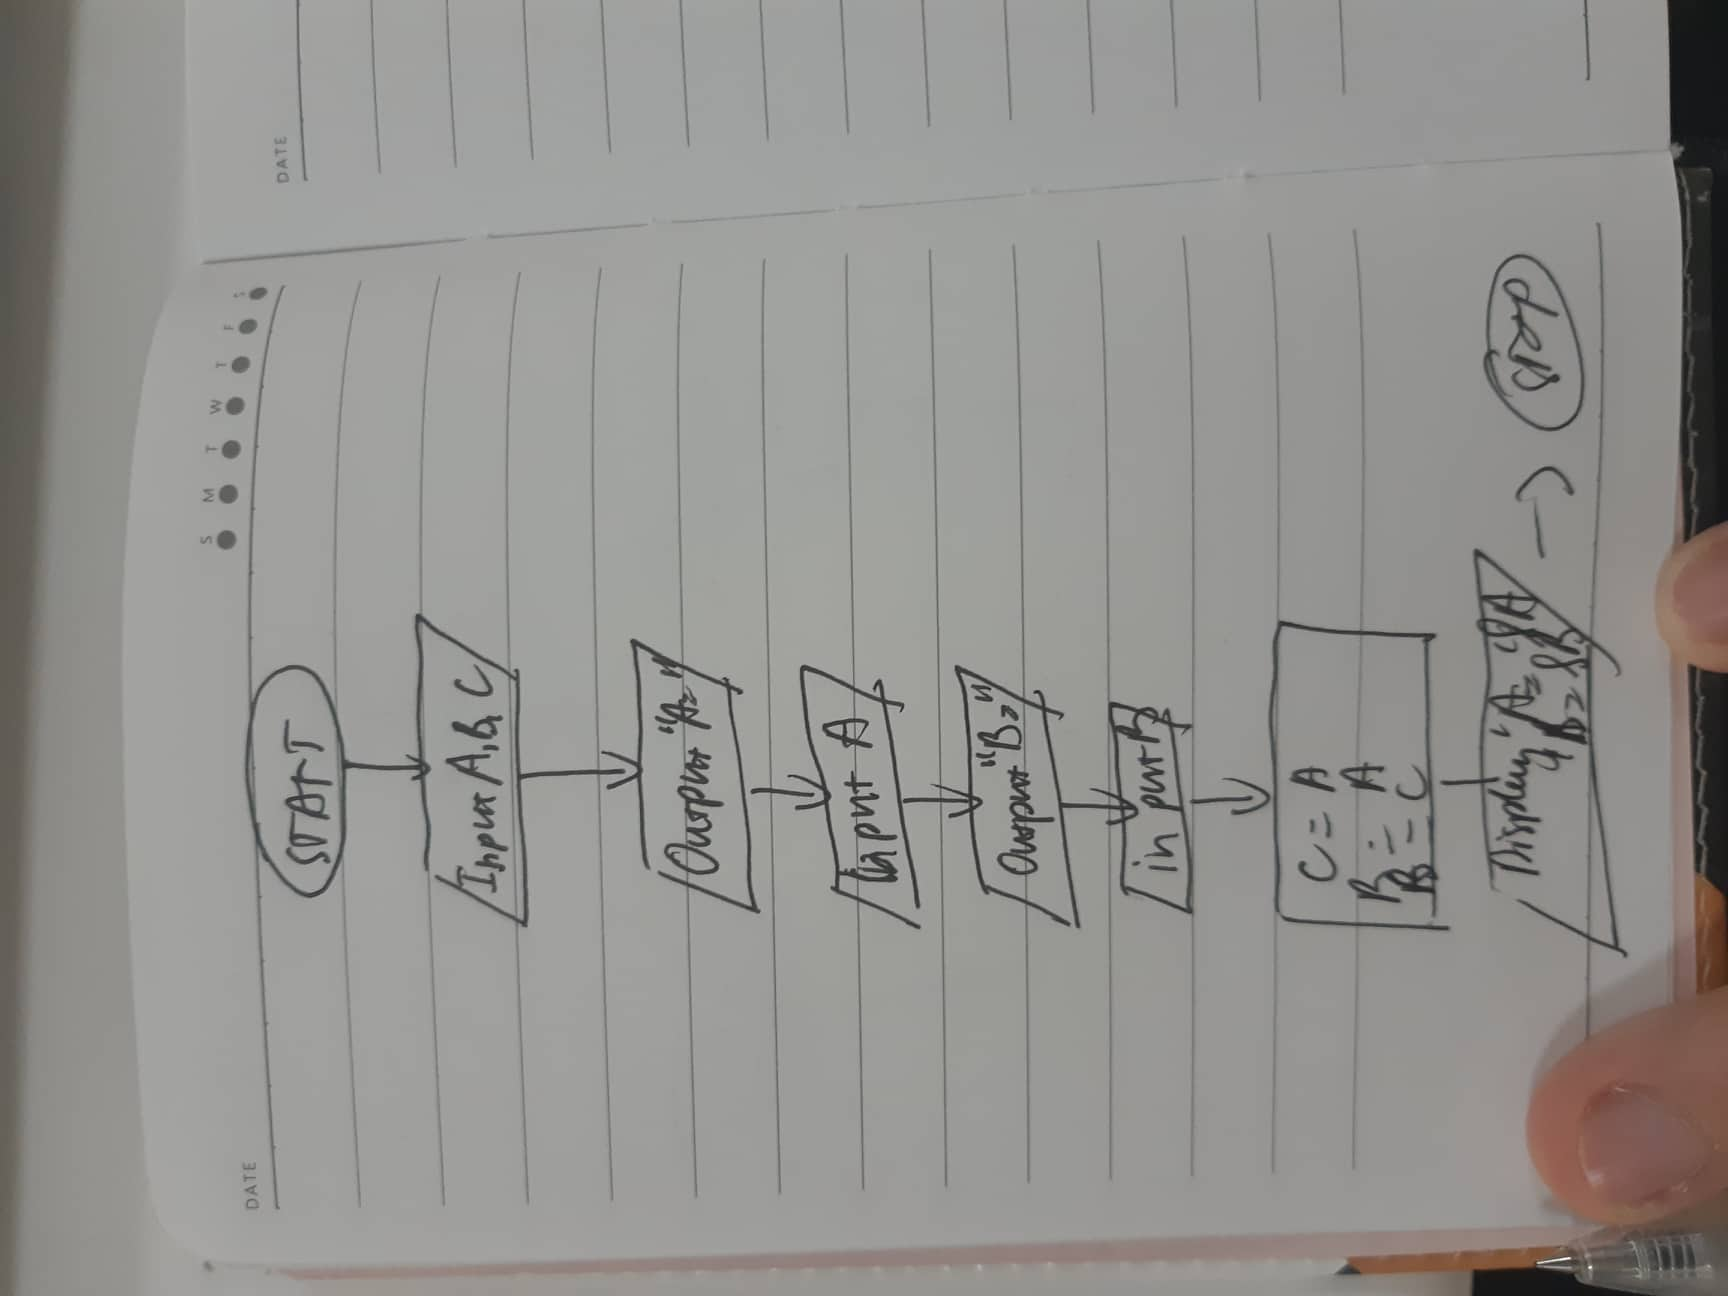 DATE
S M T W T F S
DATE
START
Input A, B, C
Output "A="
input A
Output "B="
input B
C = A
B = A
B = C
Display "A=" &A
B= &B
STOP